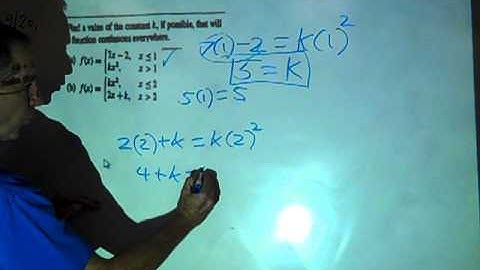 Find a value of the constant k, if possible, that will
function continuous everywhere.
(a) f(x) = { 7x − 2, x ≤ 1
kx², x > 1 ✓
(b) f(x) = { kx², x ≤ 2
2x + k, x > 2
7(1) − 2 = k(1)²
5 = k
5(1) = 5
2(2) + k = k(2)²
4 + k =